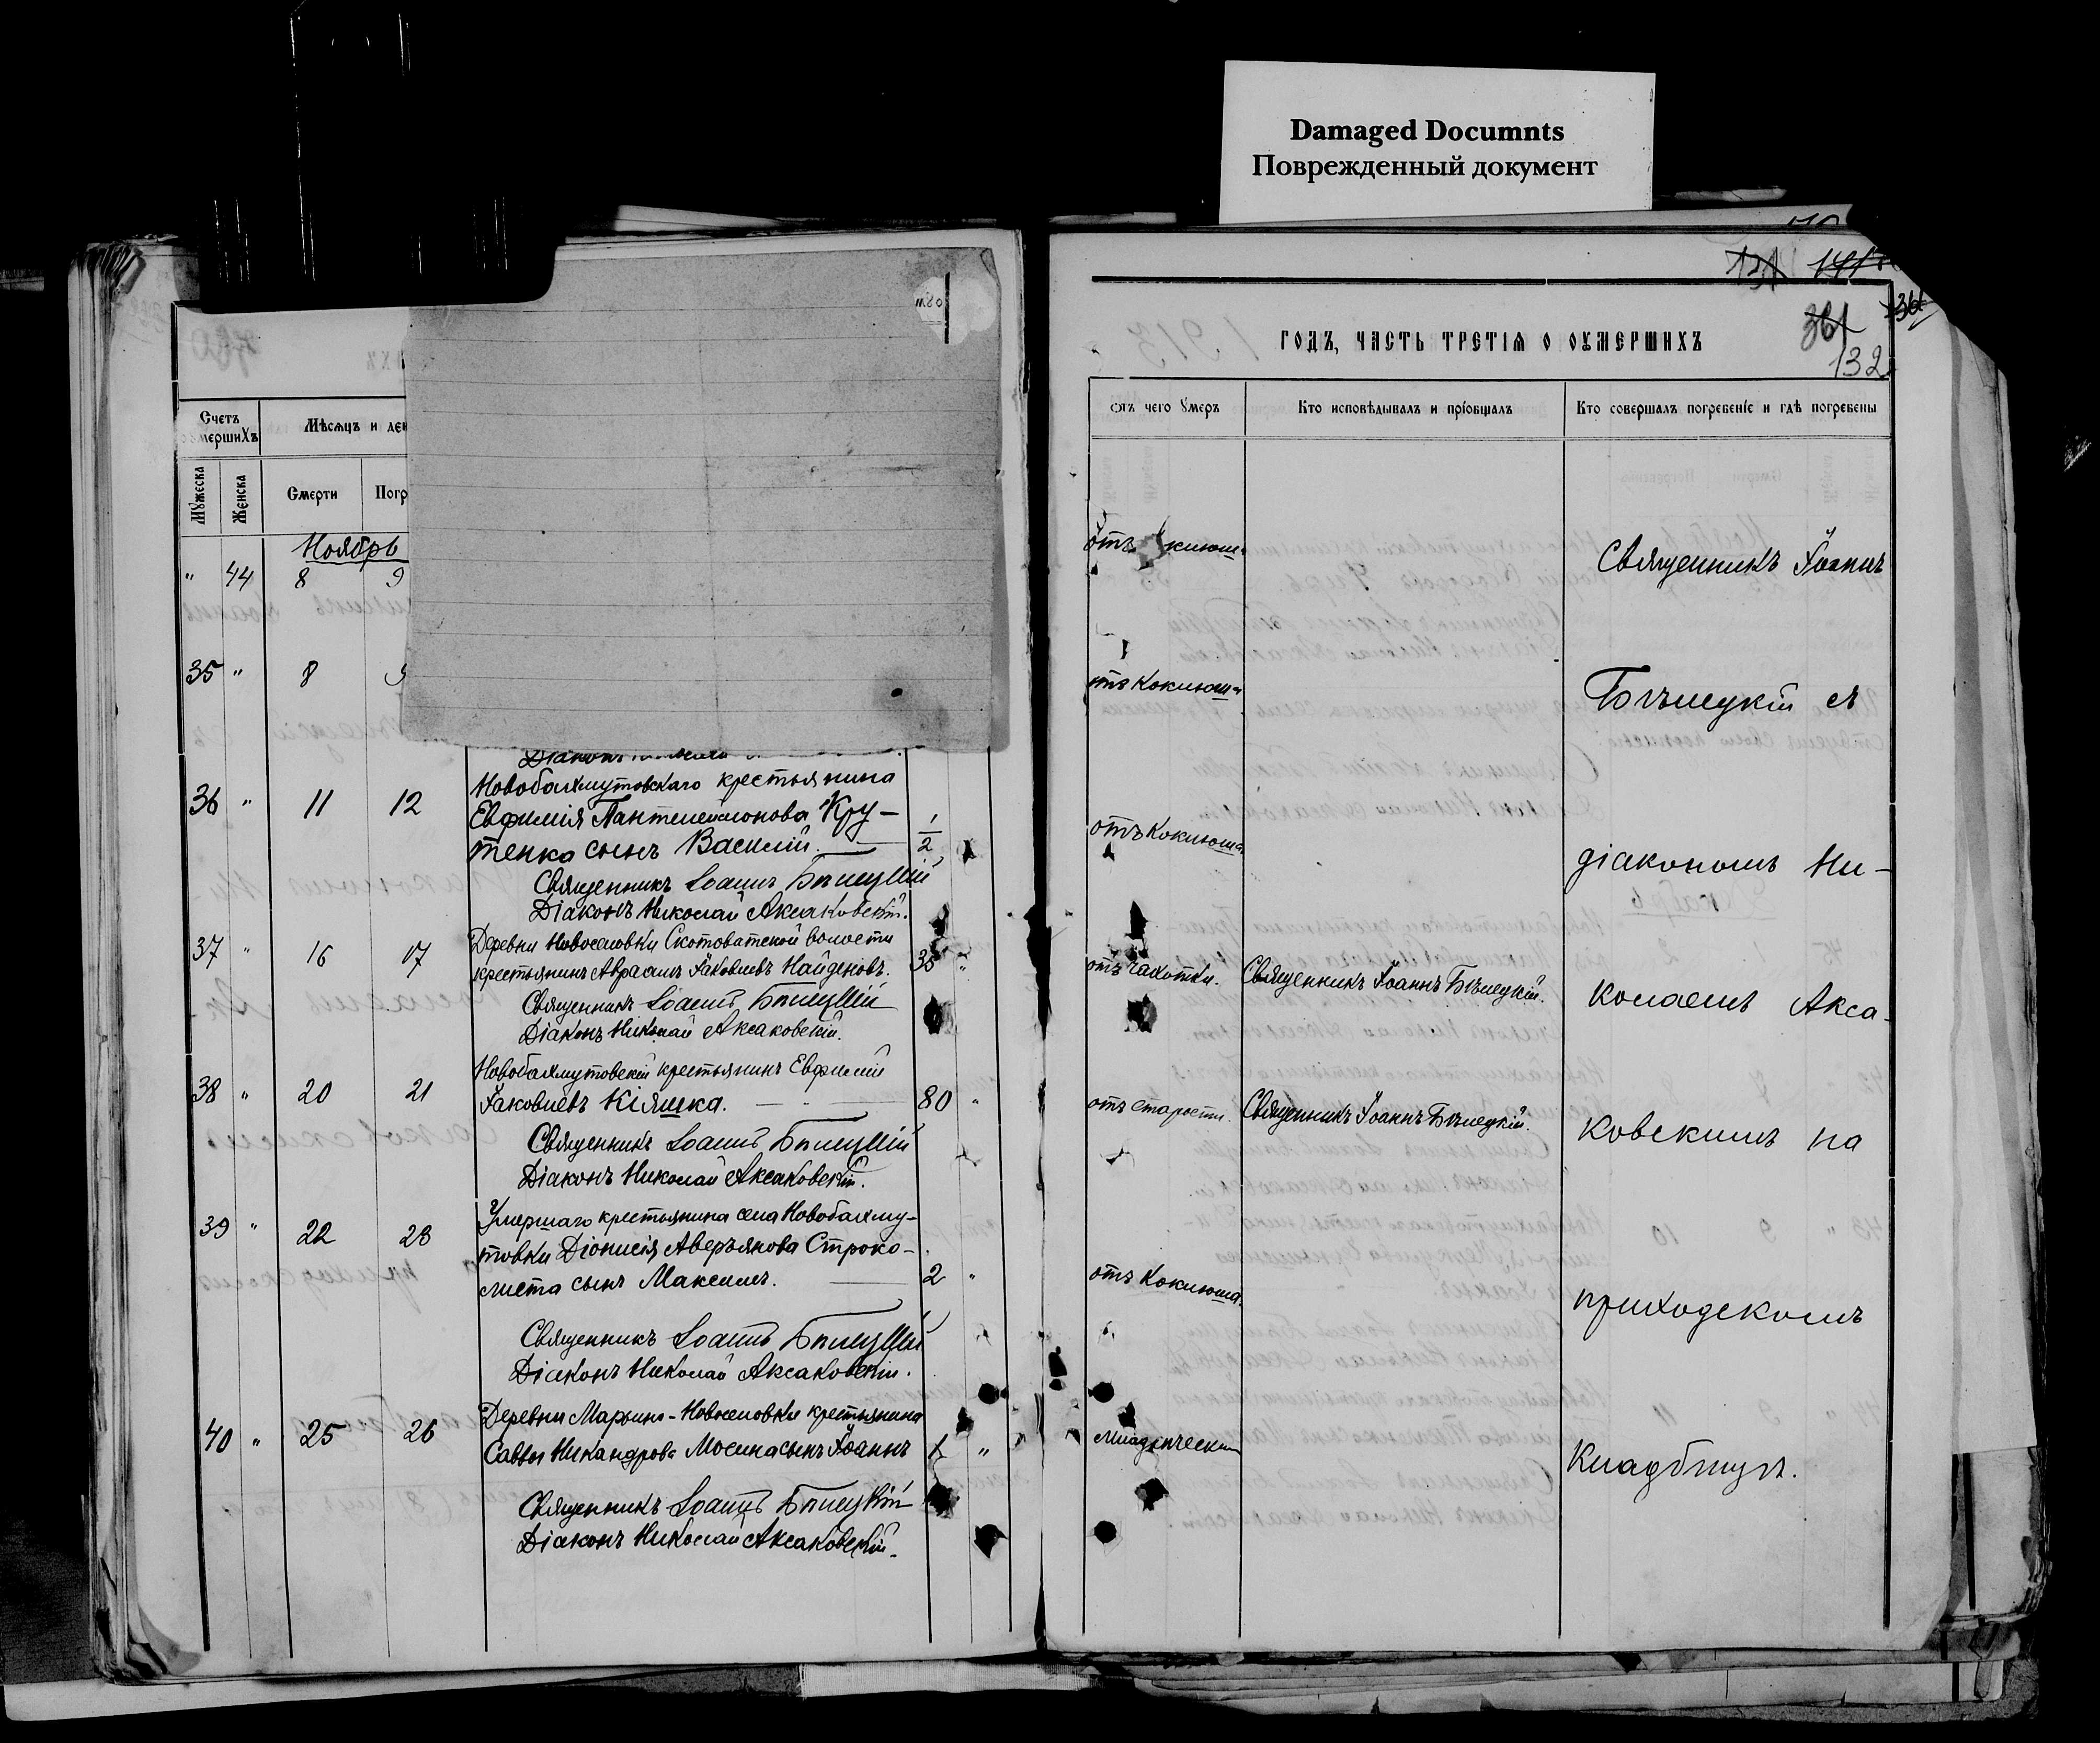 Damaged Documnts
Поврежденный документ
Счетъ
умершихъ
Мѣсяцъ и ден
Мужеска
Женска
Смерти
Погр
Ноябрь
" 44 8 9
35 " 8 9
Діаконъ
36 " 11 12
Новобахмутовскаго крестьянина
Евфимія Пантелеймонова Кру-
тенка сынъ Василій. 1/2
Священникъ Іоаннъ Бѣлецкій
Діаконъ Николай Аксаковскій.
37 " 16 17
Деревни Новоселовки Скотоватской волости
крестьянинъ Авраамъ Іаковлевъ Найденовъ. 35 "
Священникъ Іоаннъ Бѣлецкій
Діаконъ Николай Аксаковскій.
38 " 20 21
Новобахмутовскій крестьянинъ Евфимій
Іаковлевъ Кіяшка. 80 "
Священникъ Іоаннъ Бѣлецкій
Діаконъ Николай Аксаковскій.
39 " 22 23
Умершаго крестьянина села Новобахму-
товки Діонисія Аверьянова Строко-
листа сынъ Максимъ. 2 "
Священникъ Іоаннъ Бѣлецкій
Діаконъ Николай Аксаковскій.
40 " 25 26
Деревни Марьино-Новоселовки крестьянина
Саввы Никандрова Мосина сынъ Іоаннъ 1 "
Священникъ Іоаннъ Бѣлецкій
Діаконъ Николай Аксаковскій.
131
361
132
годъ, часть третія о оумершихъ
отъ чего умеръ
Кто исповѣдывалъ и пріобщалъ
Кто совершалъ погребеніе и гдѣ погребены
отъ
отъ Коклюша
отъ Коклюша
отъ чахотки. Священникъ Іоаннъ Бѣлецкій.
отъ старости. Священникъ Іоаннъ Бѣлецкій.
отъ Коклюша.
Священникъ Іоаннъ
Бѣлецкій съ
діакономъ Ни-
колаемъ Акса-
ковскимъ на
приходскомъ
кладбищѣ.